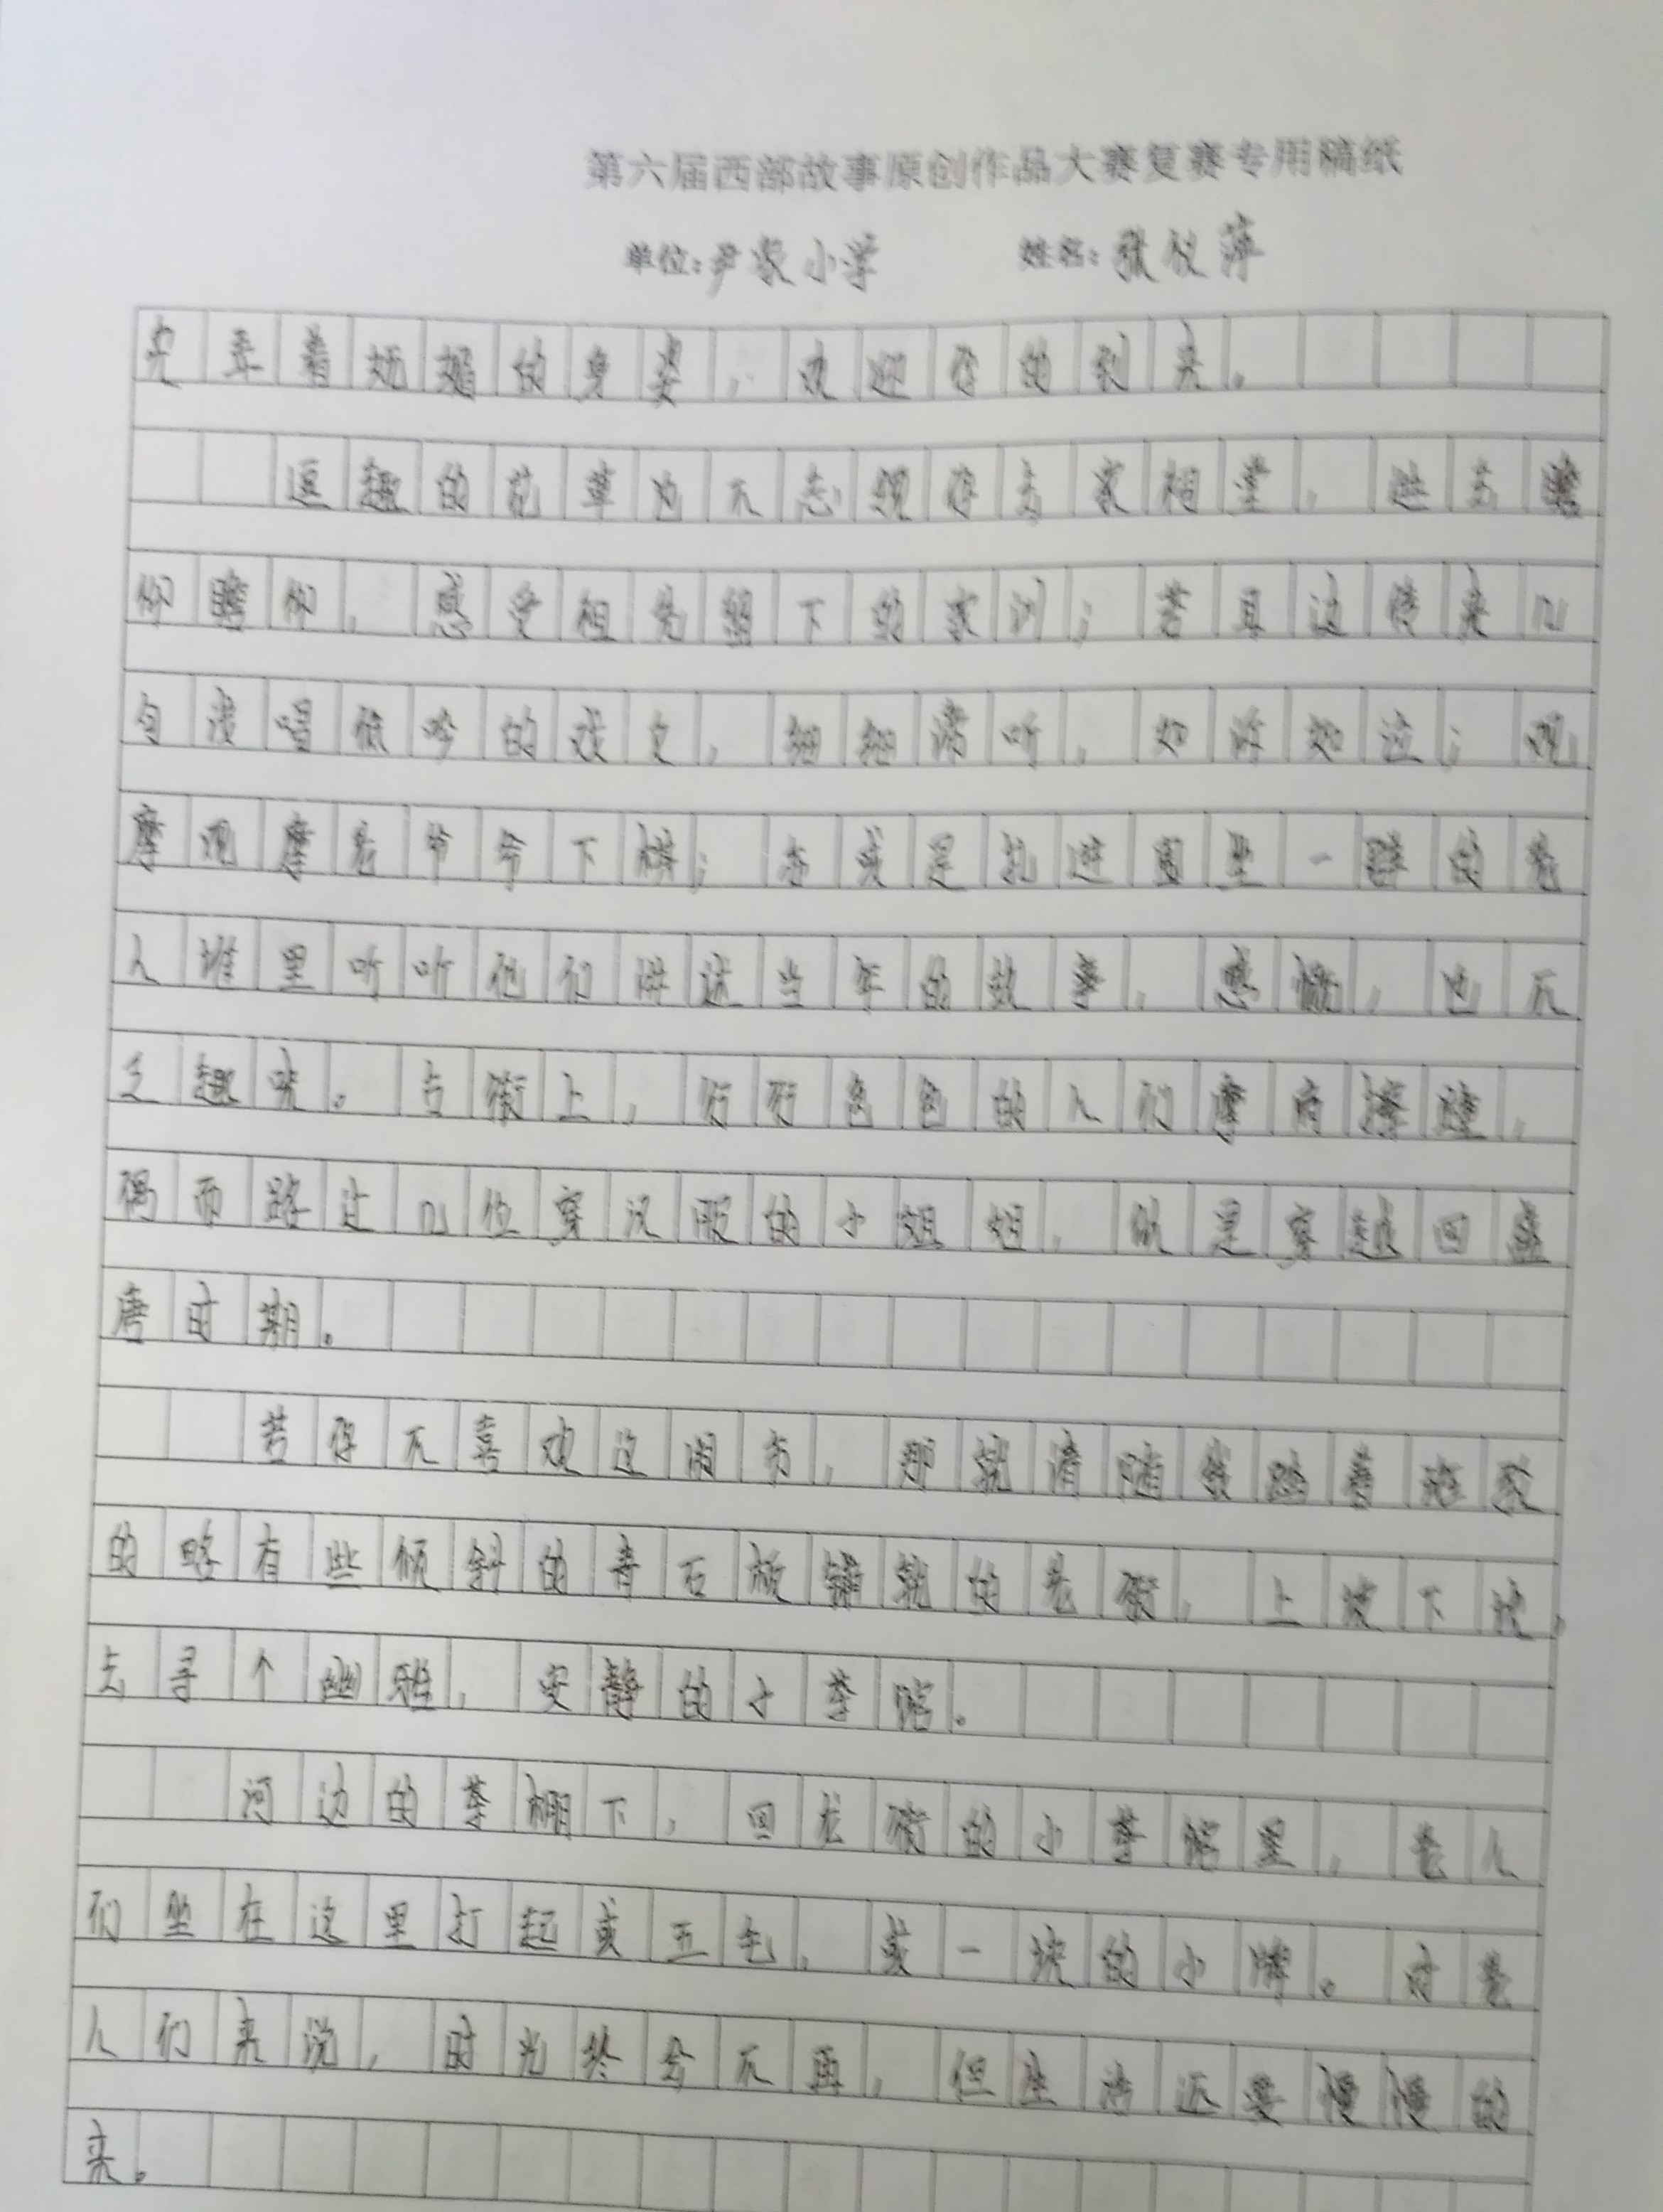 第六届西部故事原创作品大赛复赛专用稿纸
单位:尹家小学 姓名:张仪萍
着婀娜的身姿,欢迎你的到来。
逗趣的花草也不忘领你去家祠堂,进去瞻
仰瞻仰,感受祖先留下的家训;若耳边传来几
句浅唱低吟的戏文,细细谛听,如诉如泣;观
摩观摩老爷爷下棋;亦或是扎进围坐一群的老
人堆里听听他们讲述当年的故事,感慨,也不
乏趣味。古街上,行行色色的人们摩肩擦踵,
偶而路过几位穿汉服的小姐姐,似是穿越回盛
唐时期。
若你不喜欢这闹市,那就请随我踏着斑驳
的略有些倾斜的青石板铺就的老街,上坡下坡,
去寻个幽雅,安静的小茶馆。
河边的茶棚下,回龙街的小茶馆里,老人
们坐在这里打起或五毛,或一块的小牌。对老
人们来说,时光终会不再,但生活还要慢慢的
来。